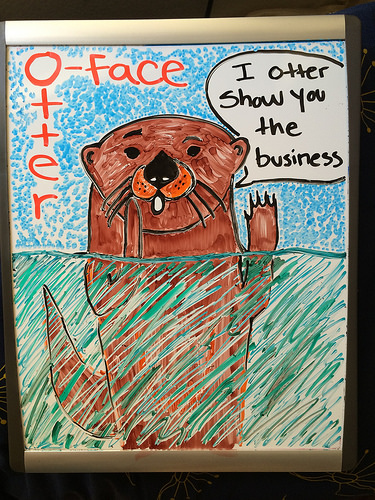 O-face
Otter
I otter
Show You
the
business